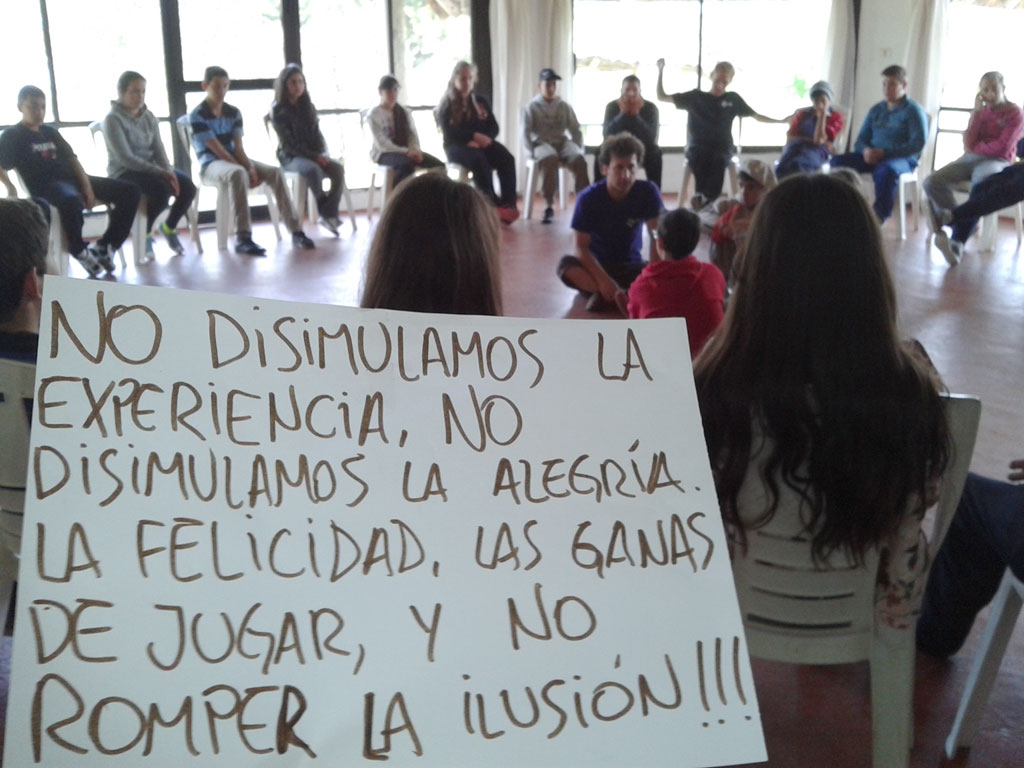 NO DISIMULAMOS LA
EXPERIENCIA, NO
DISIMULAMOS LA ALEGRÍA.
LA FELICIDAD, LAS GANAS
DE JUGAR, Y NO
ROMPER LA ILUSIÓN!!!